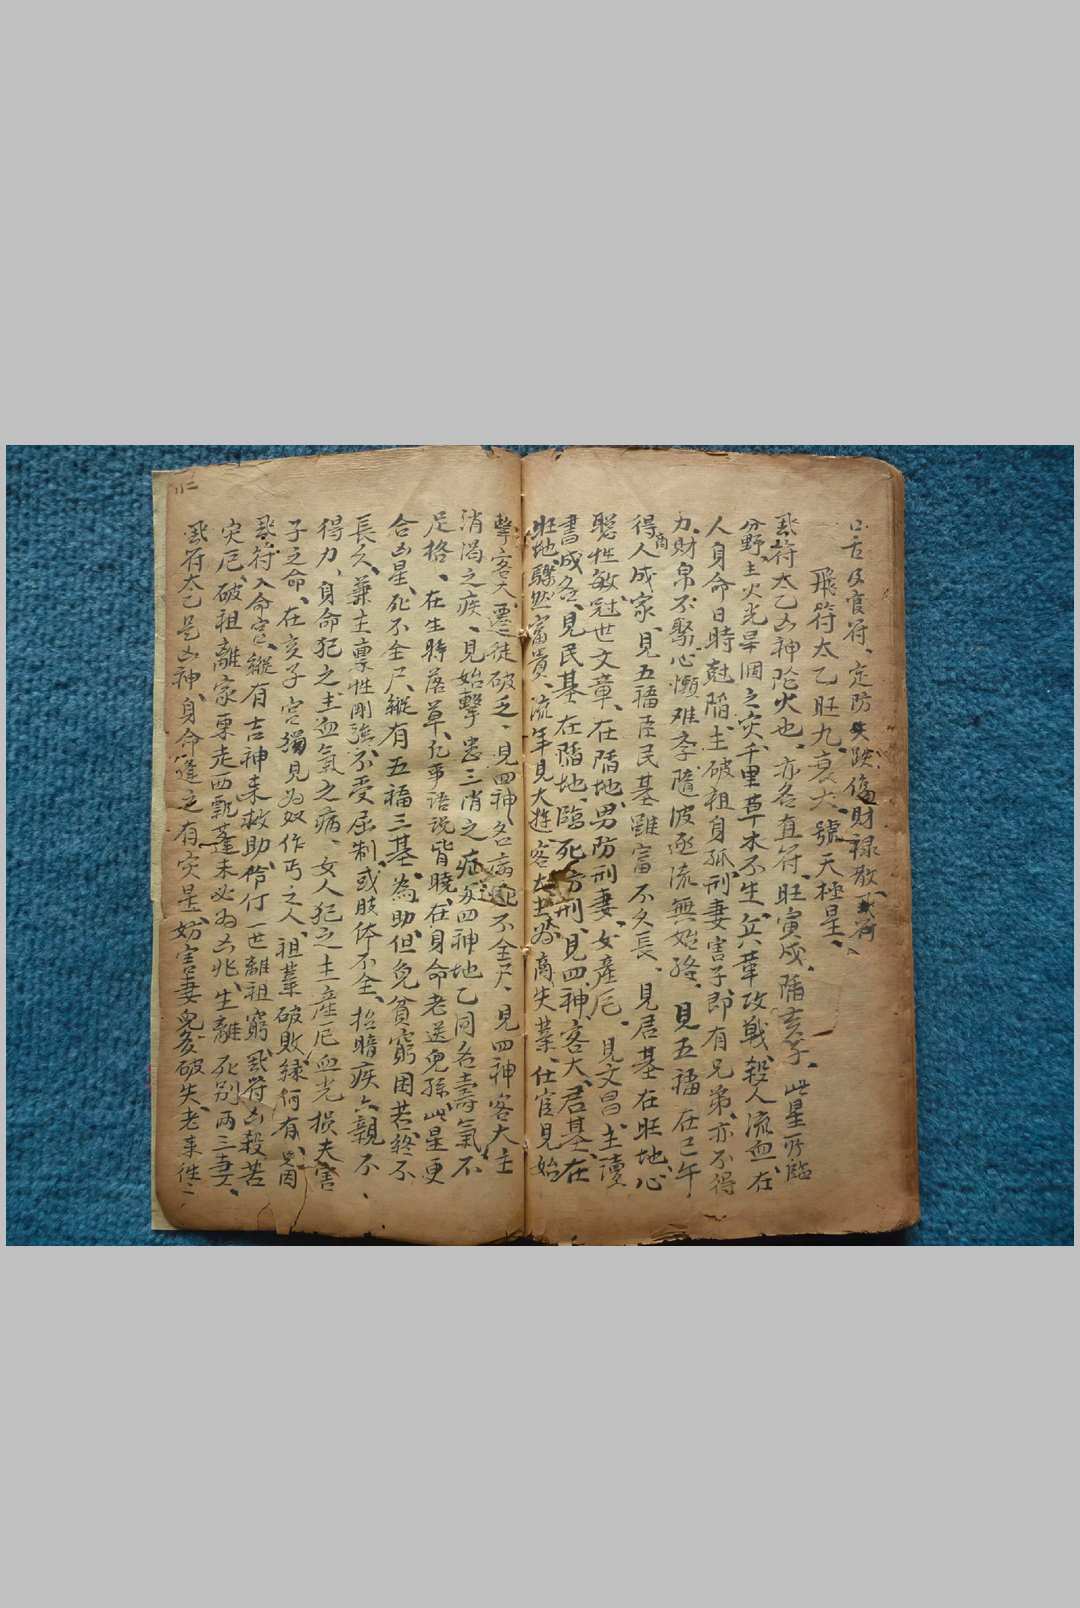 口舌及官符、定防失跌傷財祿散、飛符
飛符太乙旺九、衰六、號天極星、
飛符太乙凶神陀火也、亦名直符、旺寅戌、陷亥子、此星所臨
分野、主火光旱涸之灾、千里草木不生、兵革攻戰、殺人流血、在
人身命日時尅陷、主破祖身孤、刑妻害子、即有兄弟、亦不得
力、財帛不聚、心懶难李、隨波逐流無始終、見五福在巳午、
得人成家、見五福臣民基雖富不久長、見居基在旺地、心
聰性敏、冠世文章、在陷地、男防刑妻、女產厄、見文昌、主讀
書成名、見民基在陷地、臨死方刑、見四神、客大、君基、在
旺地、驟然富貴、流年見大遊客大主為商失業、仕宦見始
擊客大、遷徒破乏、見四神名病不全尸、見四神客大主
消渴之疾、見始擊患三消之症、如四神地乙同名壽氣不
足格、在生時落草、凡事語說皆曉、在身命老送兒孫、此星更
合凶星、死不全尸、縱有五福三基為助、但免貧窮困若、終不
長久、兼主稟性剛強、不受屈制、或肢体不全、招暗疾、六親不
得力、身命犯之主血氣之病、女人犯之主產厄血光損夫害
子之命、在亥子宫獨見為奴作丐之人、祖業破敗緣何有、只因
飛符入命宫、縱有吉神来救助、伶仃一世離祖窮、飛符凶殺苦
灾厄、破祖離家東走西、飄蓬未必為凶兆、生離死別两三妻、
飛符太乙是凶神、身命逢之有灾是、妨害妻兒多破失、老来徃